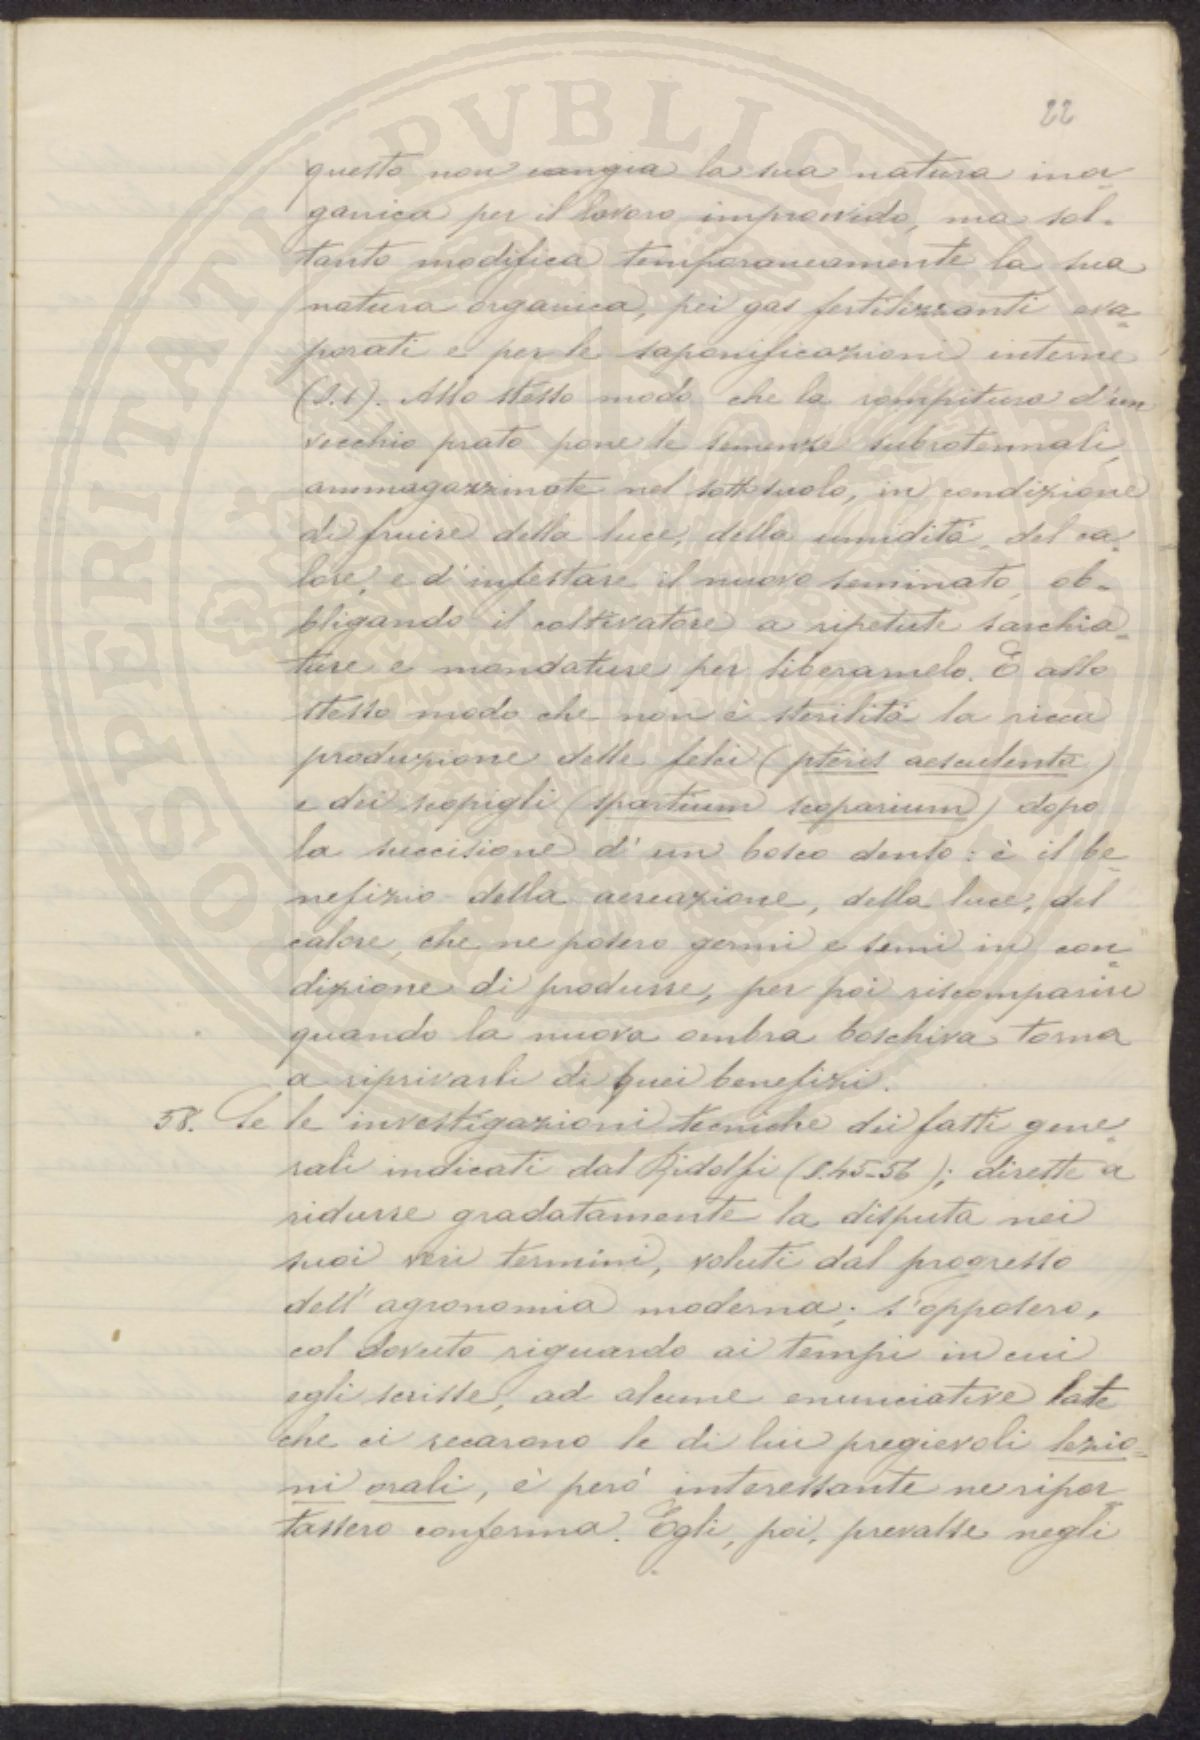 22
questo non cangia la sua natura inor-
ganica per il lavoro improvvido, ma sol-
tanto modifica temporaneamente la sua
natura organica, pei gas fertilizzanti eva-
porati e per le saponificazioni interne
(§.1). Allo stesso modo che la rompitura d'un
vecchio prato pone le semenze
ammagazzinate nel sottosuolo, in condizione
di fruire della luce, della umidità, del ca-
lore, e d'infestare il nuovo seminato, ob-
bligando il coltivatore a ripetute sarchia-
ture e mondature per liberarnelo. E allo
stesso modo che non è sterilità la ricca
produzione delle felci (pteris aesculenta)
e dei scopigli (spartium scoparium) dopo
la succisione d'un bosco denso: è il be-
nefizio della aereazione, della luce, del
calore, che ne posero germi e semi in con-
dizione di produrre, per poi riscomparire
quando la nuova ombra boschiva torna
a riprivarli di quei benefizi.
58. Se le investigazioni tecniche dei fatti gene-
rali indicati dal Ridolfi (§.45-56); dirette a
ridurre gradatamente la disputa nei
suoi veri termini, voluti dal progresso
dell'agronomia moderna; s'opposero,
col dovuto riguardo ai tempi in cui
egli scrisse, ad alcune enunciative late
che ci recarono le di lui pregievoli lezio-
ni orali, è però interessante ne ripor-
tassero conferma. Egli, poi, prevalse negli
PROSPERITATI PVBLICAE